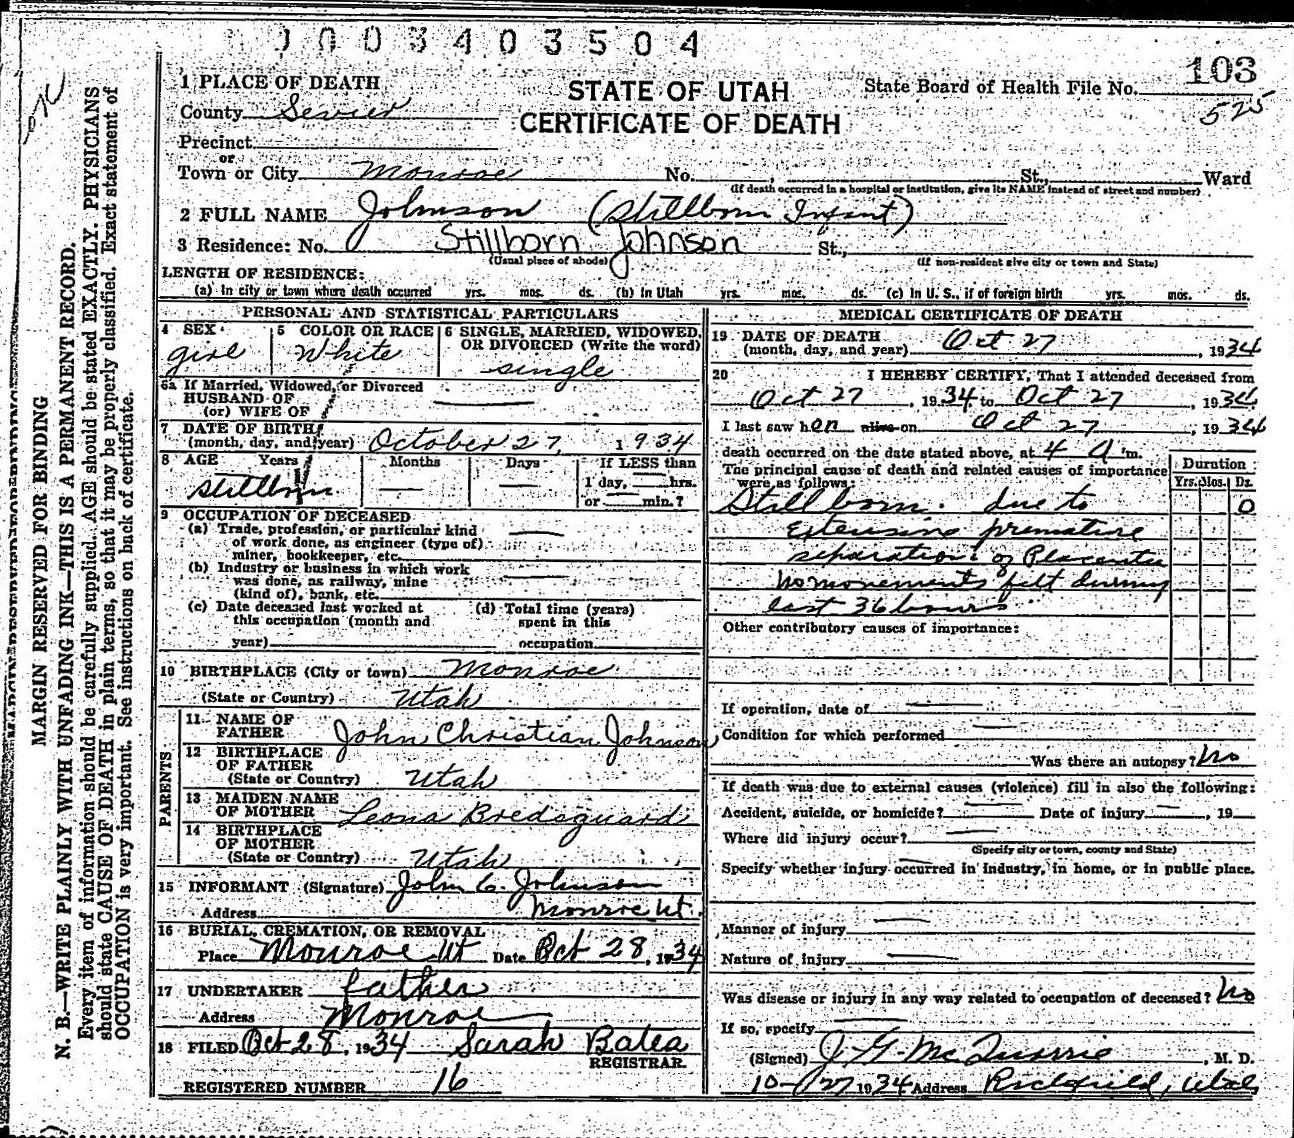 0003403504
103
1 PLACE OF DEATH
STATE OF UTAH
State Board of Health File No.
525
County Sevier
CERTIFICATE OF DEATH
Precinct
or
Town or City Monroe No. , St., Ward
(If death occurred in a hospital or institution, give its NAME instead of street and number)
2 FULL NAME Johnson (Stillborn Infant)
3 Residence: No. Stillborn Johnson St.,
(Usual place of abode) (If non-resident give city or town and State)
LENGTH OF RESIDENCE:
(a) In city or town where death occurred yrs. mos. ds. (b) In Utah yrs. mos. ds. (c) In U. S., if of foreign birth yrs. mos. ds.
PERSONAL AND STATISTICAL PARTICULARS
4 SEX girl
5 COLOR OR RACE White
6 SINGLE, MARRIED, WIDOWED,
OR DIVORCED (Write the word)
single
6a If Married, Widowed, or Divorced
HUSBAND OF
(or) WIFE OF
7 DATE OF BIRTH
(month, day, and year) October 27, 1934
8 AGE Years Months Days If LESS than
stillborn 1 day, hrs.
or min.?
9 OCCUPATION OF DECEASED
(a) Trade, profession, or particular kind
of work done, as engineer (type of)
miner, bookkeeper, etc.
(b) Industry or business in which work
was done, as railway, mine
(kind of), bank, etc.
(c) Date deceased last worked at (d) Total time (years)
this occupation (month and spent in this
year) occupation
10 BIRTHPLACE (City or town) Monroe
(State or Country) Utah
PARENTS
11 NAME OF
FATHER John Christian Johnson
12 BIRTHPLACE
OF FATHER
(State or Country) Utah
13 MAIDEN NAME
OF MOTHER Leona Bredsguard
14 BIRTHPLACE
OF MOTHER
(State or Country) Utah
15 INFORMANT (Signature) John C. Johnson
Address Monroe Ut.
16 BURIAL, CREMATION, OR REMOVAL
Place Monroe Ut Date Oct 28, 1934
17 UNDERTAKER father
Address Monroe
18 FILED Oct 28, 1934 Sarah Batea
REGISTRAR.
REGISTERED NUMBER 16
MEDICAL CERTIFICATE OF DEATH
19 DATE OF DEATH
(month, day, and year) Oct 27, 1934
20 I HEREBY CERTIFY, That I attended deceased from
Oct 27, 1934 to Oct 27, 1934
I last saw her alive on Oct 27, 1934
death occurred on the date stated above, at 4 A m.
The principal cause of death and related causes of importance
were as follows:
Duration
Yrs. Mos. Ds.
Stillborn. due to 0
Extensive premature
separation of Placenta
No movements felt during
last 36 hours
Other contributory causes of importance:
If operation, date of
Condition for which performed
Was there an autopsy? No
If death was due to external causes (violence) fill in also the following:
Accident, suicide, or homicide? Date of injury , 19
Where did injury occur?
(Specify city or town, county and State)
Specify whether injury occurred in industry, in home, or in public place.
Manner of injury
Nature of injury
Was disease or injury in any way related to occupation of deceased? No
If so, specify
(Signed) J. G. McQuarrie, M. D.
10-27 1934 Address Richfield, Utah
MARGIN RESERVED FOR BINDING
N. B.—WRITE PLAINLY WITH UNFADING INK—THIS IS A PERMANENT RECORD.
Every item of information should be carefully supplied. AGE should be stated EXACTLY. PHYSICIANS
should state CAUSE OF DEATH in plain terms, so that it may be properly classified. Exact statement of
OCCUPATION is very important. See instructions on back of certificate.